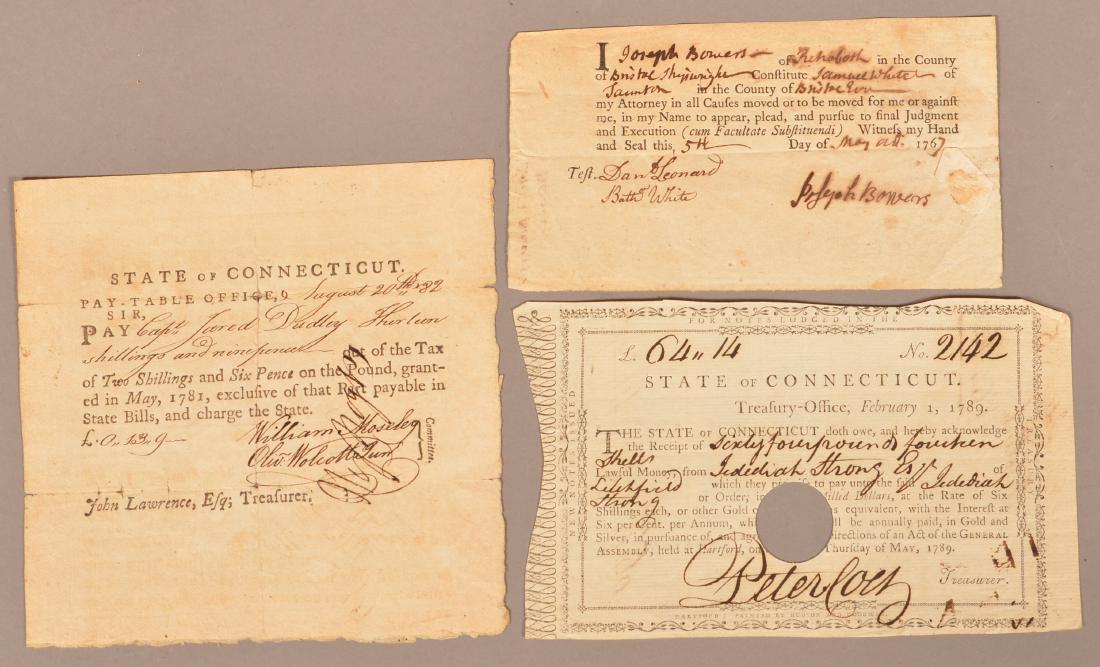 STATE OF CONNECTICUT.
PAY-TABLE OFFICE, August 20th 1782
SIR,
PAY Capt Jared Dudley Thirteen
shillings and ninepence out of the Tax
of Two Shillings and Six Pence on the Pound, grant-
ed in May, 1781, exclusive of that Part payable in
State Bills, and charge the State.
£. 0, 13, 9
William Moseley
Olivr Wolcott Junr
Committee.
John Lawrence, Esq; Treasurer.
I Joseph Bowers of Rehoboth in the County
of Bristol Shipwright Constitute Samuel White of
Taunton in the County of Bristol
my Attorney in all Causes moved or to be moved for me or against
me, in my Name to appear, plead, and pursue to final Judgment
and Execution (cum Facultate Substituendi) Witness my Hand
and Seal this, 5th Day of May 1767
Test. Danl Leonard
White
Joseph Bowers
FOR NOTES LODGED IN THE
£. 64 " 14 No. 2142
STATE OF CONNECTICUT.
Treasury-Office, February 1, 1789.
THE STATE OF CONNECTICUT doth owe, and hereby acknowledge
the Receipt of Sixty four pounds fourteen
Shills
Lawful Money, from Jedediah Strong Esqr of
Litchfield which they promise to pay unto the said Jedediah
Strong or Order, in Milled Dollars, at the Rate of Six
Shillings each, or other Gold equivalent, with the Interest at
Six per Cent. per Annum, be annually paid, in Gold and
Silver, in pursuance of, and Directions of an Act of the GENERAL
ASSEMBLY, held at Hartford, on Thursday of MAY, 1789.
Peter Colt Treasurer.
NEW NOTES ISSUED
TREASURY
HARTFORD PRINTED BY HUDSON AND GOODWIN